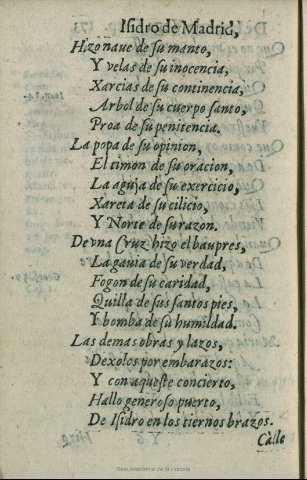 Isidro de Madrid,
Hizo naue de su manto,
Y velas de su inocencia,
Xarcias de su continencia,
Arbol de su cuerpo santo,
Proa de su penitencia.
La popa de su opinion,
El timon de su oracion,
La aguja de su exercicio,
Xareta de su cilicio,
Y Norte de su razon.
De vna Cruz hizo el baupres,
La gauia de su verdad,
Fogon de su caridad,
Quilla de sus santos pies,
Y bomba de su humildad.
Las demas obras y lazos,
Dexolos por embarazos:
Y con aqueste concierto,
Hallo generoso puerto,
De Isidro en los tiernos brazos.
Calle